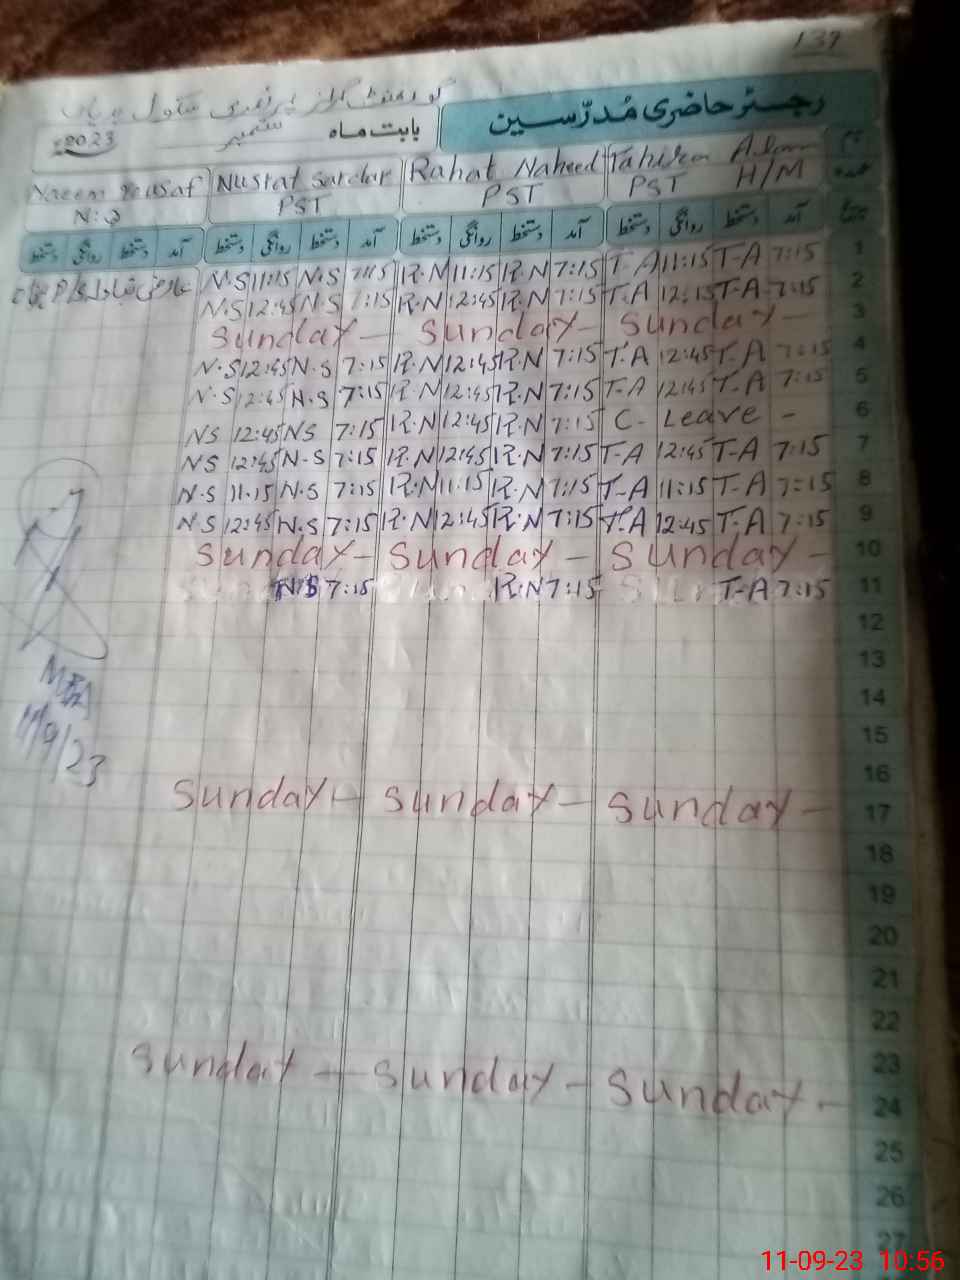 139
گورنمنٹ گرلز پرائمری سکول
رجسٹر حاضری مُدرّسین
بابت ماہ ستمبر 2023ء
نام Tahira Alam Rahat Naheed Nusrat Sardar Naeem Yousaf
عہدہ PST H/M PST PST
آمد دستخط روانگی دستخط آمد دستخط روانگی دستخط آمد دستخط روانگی دستخط آمد دستخط روانگی دستخط
N.S 11:15 N.S 7:15 R.N 11:15 R.N 7:15 T-A 11:15 T-A 7:15 1
N.S 12:45 N.S 7:15 R.N 12:45 R.N 7:15 T.A 12:15 T-A 7:15 2
Sunday - Sunday - Sunday - 3
N.S 12:45 N.S 7:15 R.N 12:45 R.N 7:15 T-A 12:45 T-A 7:15 4
N.S 12:45 N.S 7:15 R.N 12:45 R.N 7:15 T-A 12:45 T-A 7:15 5
NS 12:45 NS 7:15 R.N 12:45 R.N 7:15 C- Leave - 6
NS 12:45 N-S 7:15 R.N 12:45 R.N 7:15 T-A 12:45 T-A 7:15 7
N.S 11.15 N.S 7:15 R.N 11:15 R.N 7:15 T-A 11:15 T-A 7:15 8
N.S 12:45 N.S 7:15 R.N 12:45 R.N 7:15 T.A 12:45 T-A 7:15 9
Sunday - Sunday - Sunday - 10
N.S 7:15 R.N 7:15 T-A 7:15 11
12
13
MEA
14
11/9/23
15
16
Sunday - Sunday - Sunday - 17
18
19
20
21
22
23
Sunday - Sunday - Sunday - 24
25
26
27
11-09-23 10:56